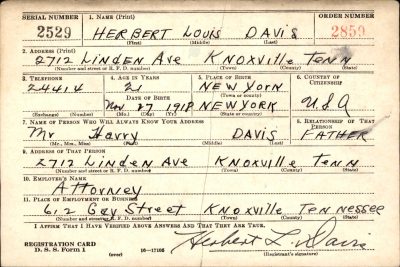 SERIAL NUMBER 1. NAME (Print) ORDER NUMBER
2529 HERBERT LOUIS DAVIS 2850
(First) (Middle) (Last)
2. ADDRESS (Print)
2712 LINDEN AVE KNOXVILLE TENN
(Number and street or R. F. D. number) (Town) (County) (State)
3. TELEPHONE 4. AGE IN YEARS 5. PLACE OF BIRTH 6. COUNTRY OF CITIZENSHIP
24414 21 NEW YORK
(Town or county)
DATE OF BIRTH
Nov 27 1918 NEW YORK USA
(Exchange) (Number) (Mo.) (Day) (Yr.) (State or country)
7. NAME OF PERSON WHO WILL ALWAYS KNOW YOUR ADDRESS 8. RELATIONSHIP OF THAT PERSON
Mr Harry DAVIS FATHER
(Mr., Mrs., Miss) (First) (Middle) (Last)
9. ADDRESS OF THAT PERSON
2712 LINDEN AVE KNOXVILLE TENN
(Number and street or R. F. D. number) (Town) (County) (State)
10. EMPLOYER'S NAME
Attorney
11. PLACE OF EMPLOYMENT OR BUSINESS
612 Gay Street KNOXVILLE TENNESSEE
(Number and street or R. F. D. number) (Town) (County) (State)
I AFFIRM THAT I HAVE VERIFIED ABOVE ANSWERS AND THAT THEY ARE TRUE.
REGISTRATION CARD
D. S. S. Form 1 (over) 16—17105 Herbert L. Davis
(Registrant's signature)